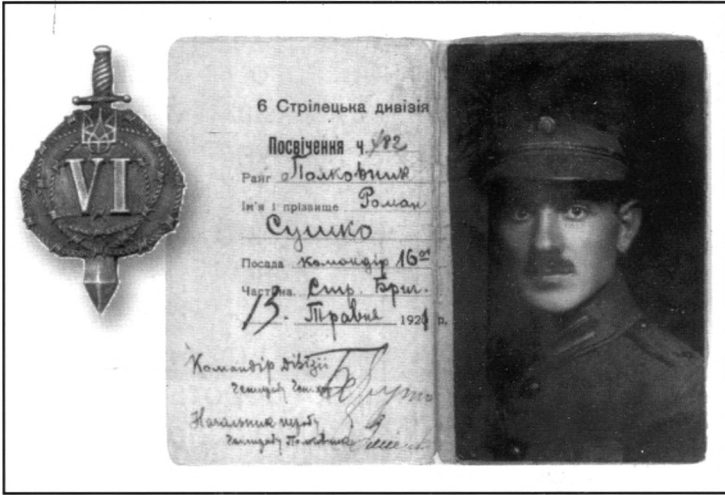 VI
6 Стрілецька дивізія
Посвічення ч. 182
Ранг Полковник
Ім'я і прізвище Роман
Сушко
Посада командір 16ої
Частина Стр. Бриг.
13. Травня 1921 р.
Командір дивізії
Начальник штабу